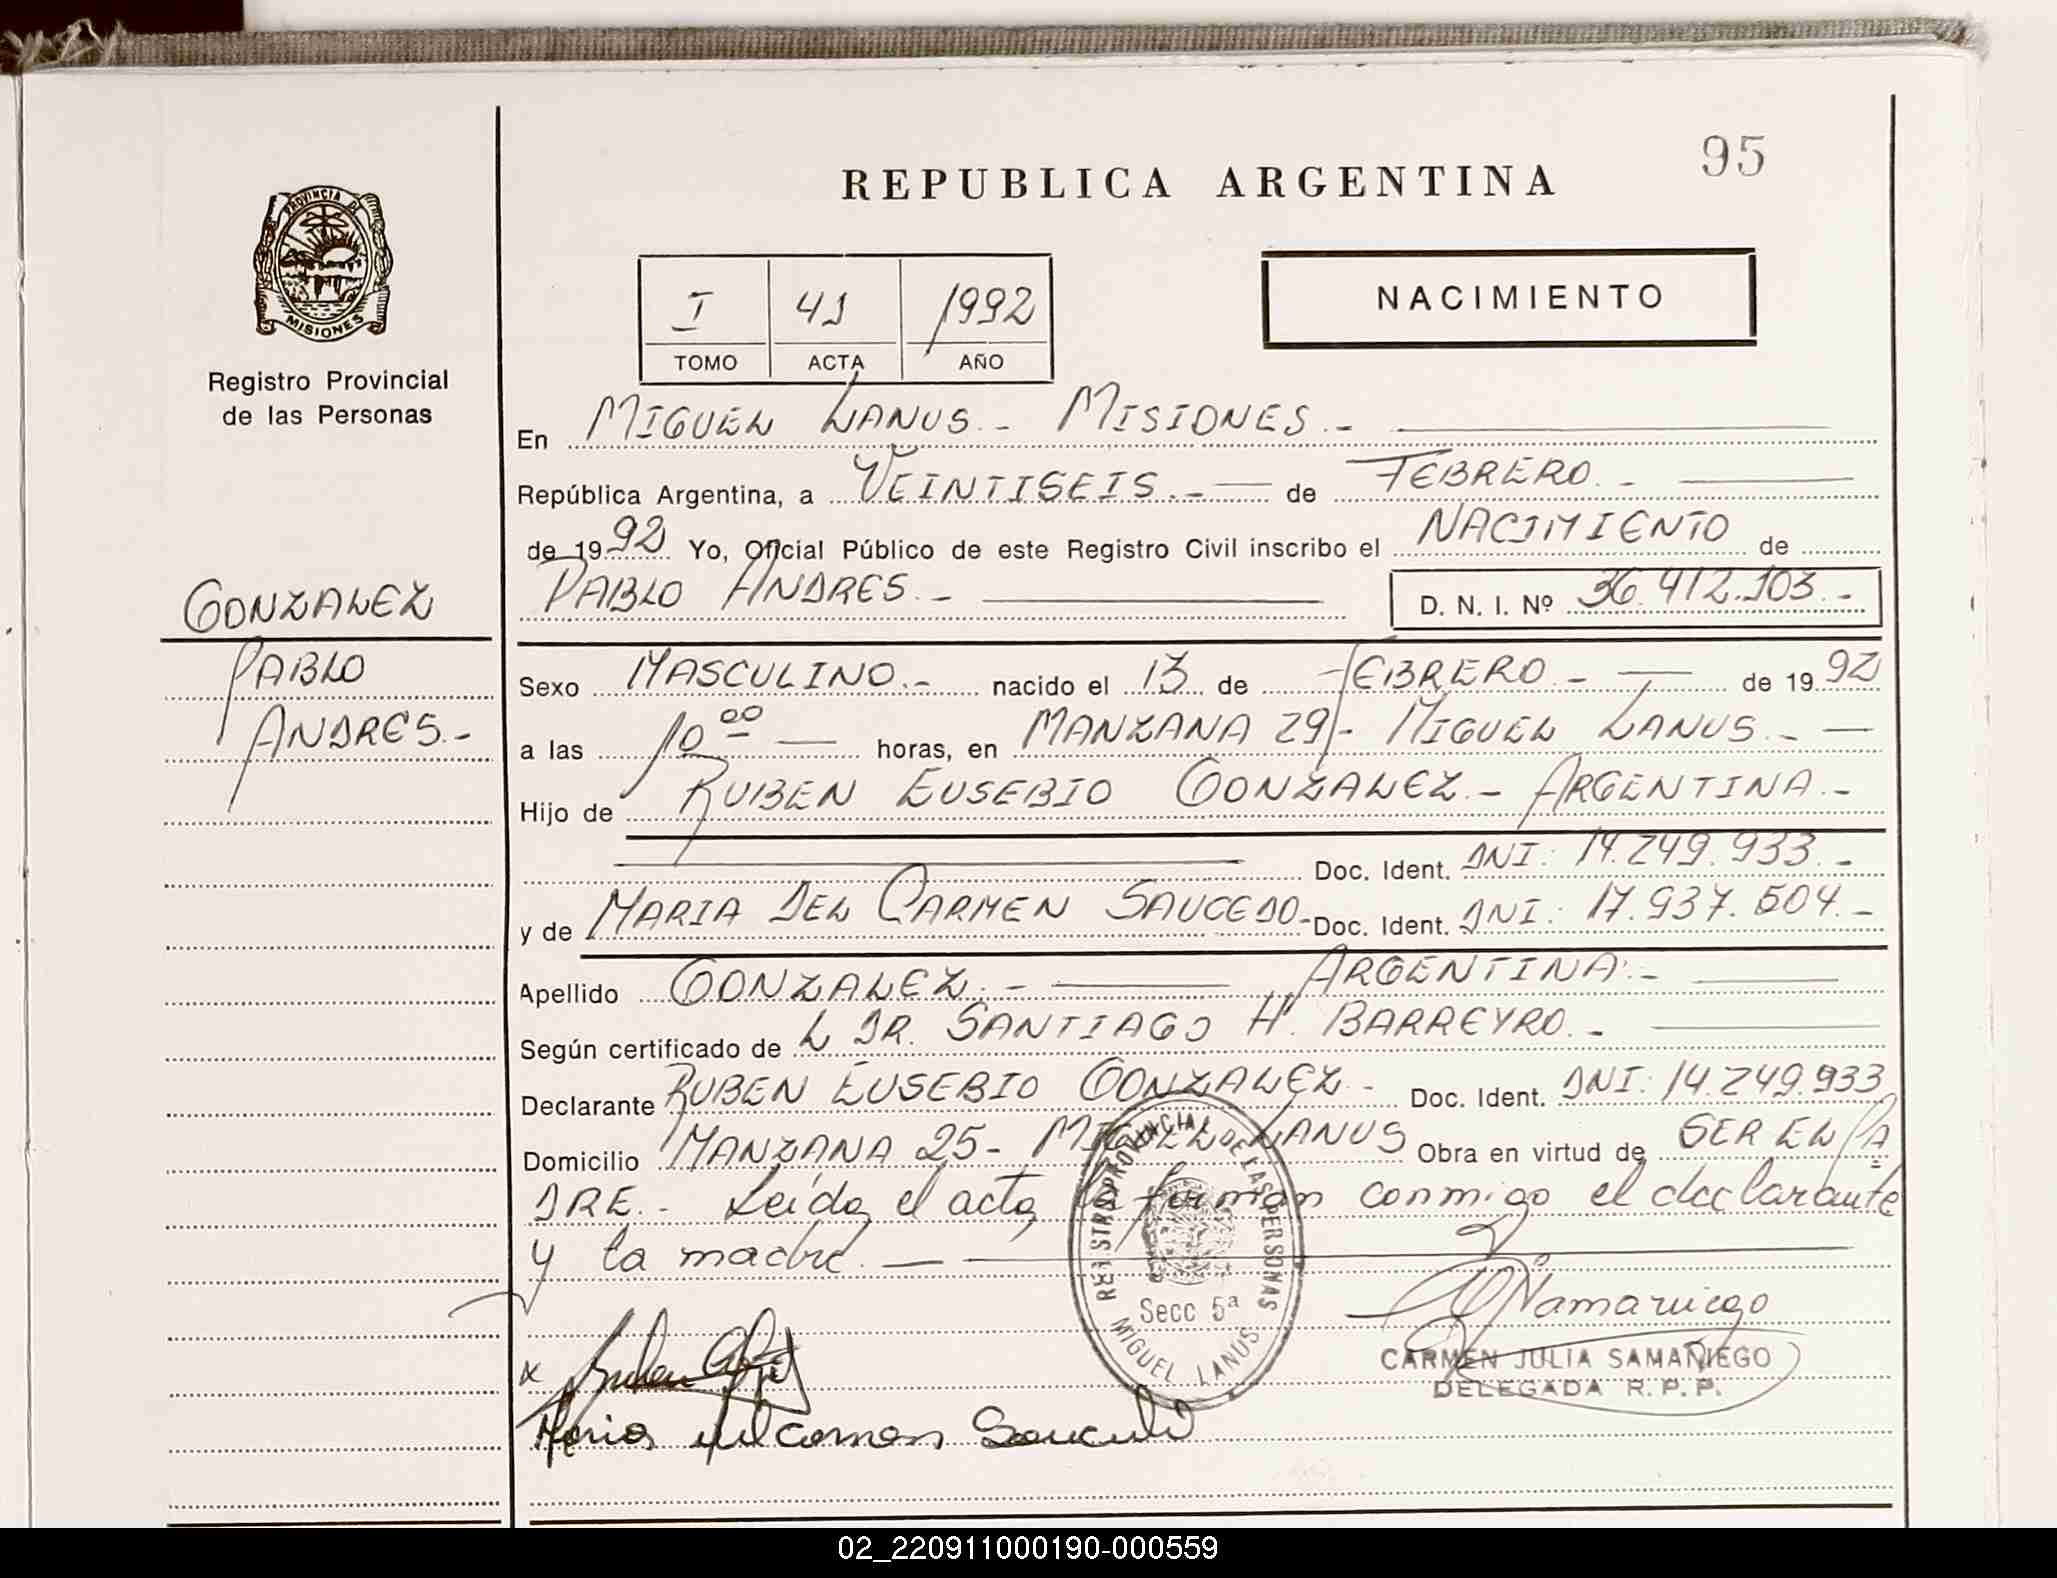 95
REPUBLICA ARGENTINA
PROVINCIA DE
MISIONES
Registro Provincial
de las Personas
I 41 1992
TOMO ACTA AÑO
NACIMIENTO
En MIGUEL LANUS.- MISIONES.-
República Argentina, a VEINTISEIS.- de FEBRERO.-
de 1992 Yo, Oficial Público de este Registro Civil inscribo el NACIMIENTO de
PABLO ANDRES.- D. N. I. Nº 36.412.103.-
GONZALEZ
PABLO
ANDRES.-
Sexo MASCULINO.- nacido el 13 de FEBRERO.- de 1992
a las 10 00 horas, en MANZANA 29- MIGUEL LANUS.-
Hijo de RUBEN EUSEBIO GONZALEZ.- ARGENTINA.-
Doc. Ident. DNI: 14.249.933.-
y de MARIA DEL CARMEN SAUCEDO- Doc. Ident. DNI: 17.937.504.-
Apellido GONZALEZ.- ARGENTINA.-
Según certificado de L DR. SANTIAGO H. BARREYRO.-
Declarante RUBEN EUSEBIO GONZALEZ.- Doc. Ident. DNI: 14.249.933
Domicilio MANZANA 25- MIGUEL LANUS Obra en virtud de SER EL PA
DRE.- Leída el acta la firman conmigo el declarante
y la madre.-
REGISTRO PROVINCIAL DE LAS PERSONAS
Secc 5ª
MIGUEL LANUS
Samaniego
CARMEN JULIA SAMAÑIEGO
DELEGADA R. P. P.
x Ruben
Maria del Carmen Saucedo
02_220911000190-000559